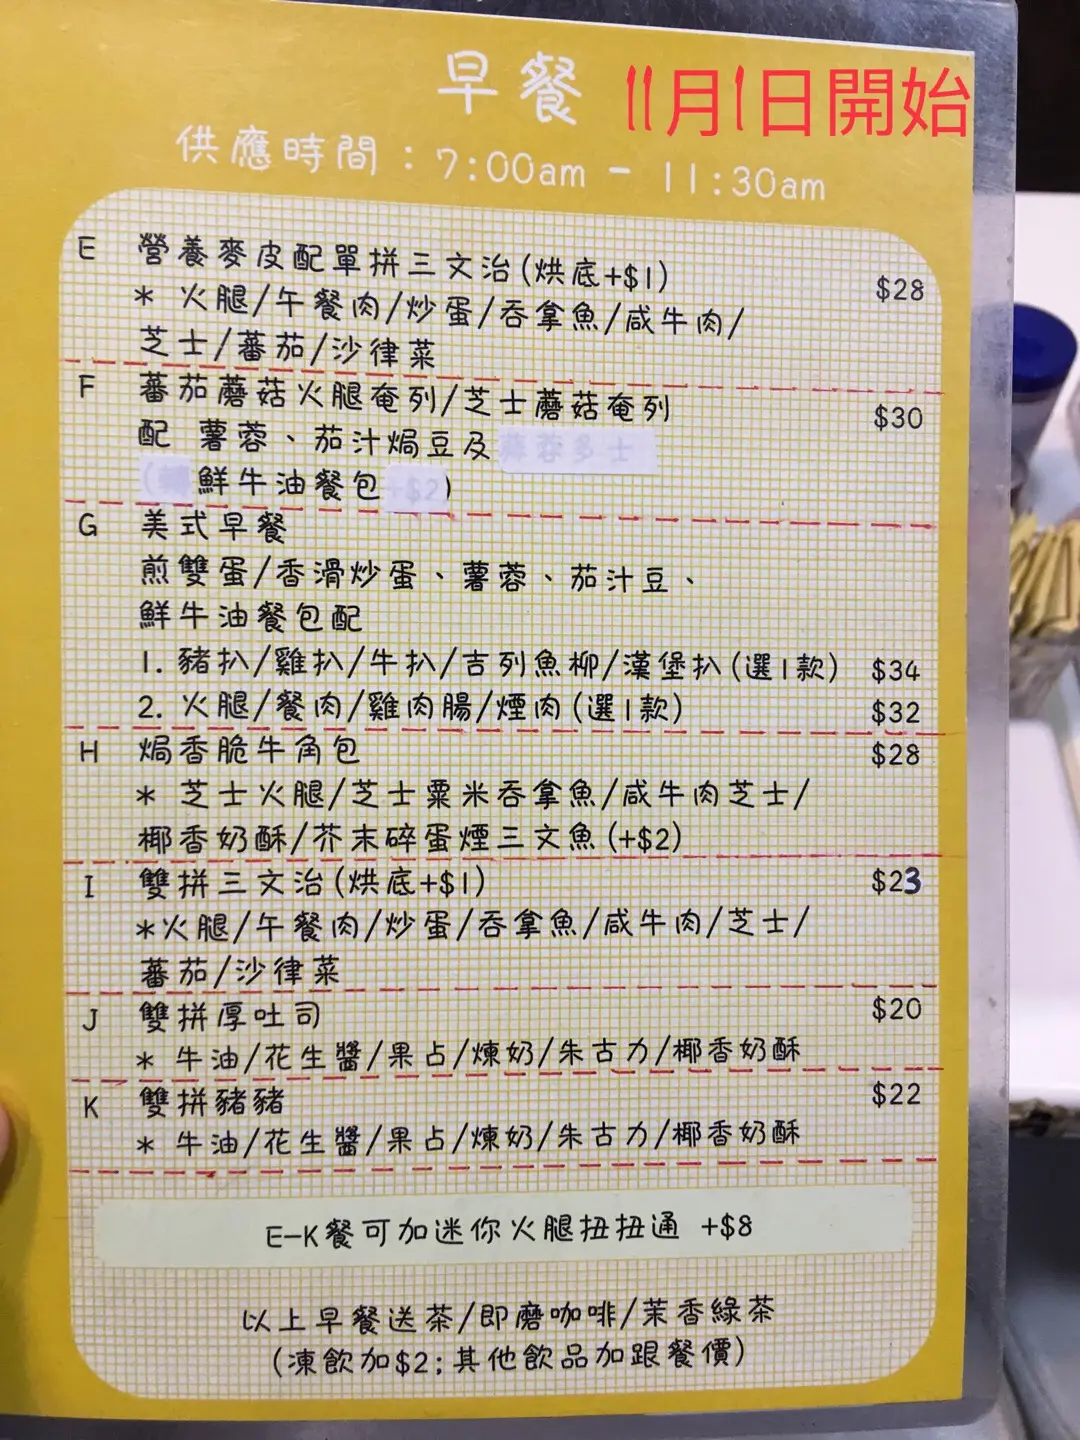 早餐 11月1日開始
供應時間：7:00am - 11:30am
E 營養麥皮配單拼三文治(烘底+$1) $28
* 火腿/午餐肉/炒蛋/吞拿魚/咸牛肉/
芝士/蕃茄/沙律菜
F 蕃茄蘑菇火腿奄列/芝士蘑菇奄列 $30
配 薯蓉、茄汁焗豆及
鮮牛油餐包 )
G 美式早餐
煎雙蛋/香滑炒蛋、薯蓉、茄汁豆、
鮮牛油餐包配
1. 豬扒/雞扒/牛扒/吉列魚柳/漢堡扒(選1款) $34
2. 火腿/餐肉/雞肉腸/煙肉(選1款) $32
H 焗香脆牛角包 $28
* 芝士火腿/芝士粟米吞拿魚/咸牛肉芝士/
椰香奶酥/芥末碎蛋煙三文魚(+$2)
I 雙拼三文治(烘底+$1) $23
*火腿/午餐肉/炒蛋/吞拿魚/咸牛肉/芝士/
蕃茄/沙律菜
J 雙拼厚吐司 $20
* 牛油/花生醬/果占/煉奶/朱古力/椰香奶酥
K 雙拼豬豬 $22
* 牛油/花生醬/果占/煉奶/朱古力/椰香奶酥
E-K餐可加迷你火腿扭扭通 +$8
以上早餐送茶/即磨咖啡/茉香綠茶
(凍飲加$2;其他飲品加跟餐價)